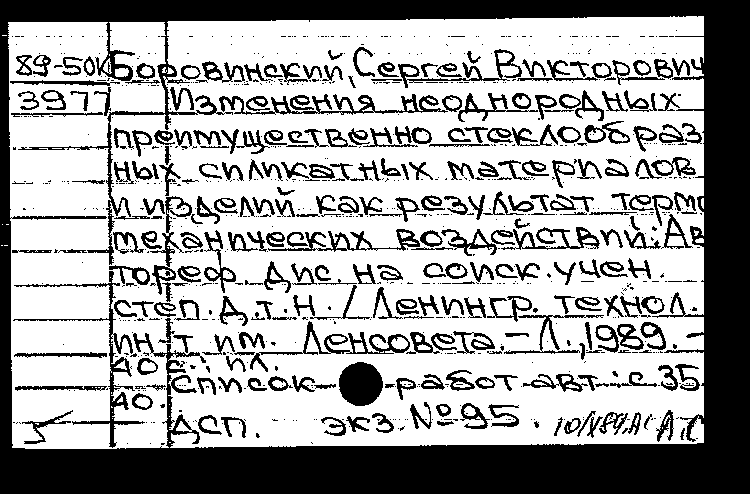 89-50К Боровинский, Сергей Викторович
3977 Изменения неоднородных
преимущественно стеклообраз-
ных силикатных материалов
и изделий как результат термо
механических воздействий: Ав
тореф. дис. на соиск. учен.
степ. д.т.н. / Ленингр. технол.
ин-т им. Ленсовета. - Л., 1989. -
40 с.: ил.
Список работ авт.: с 35-
40.
ДСП. экз. № 95.